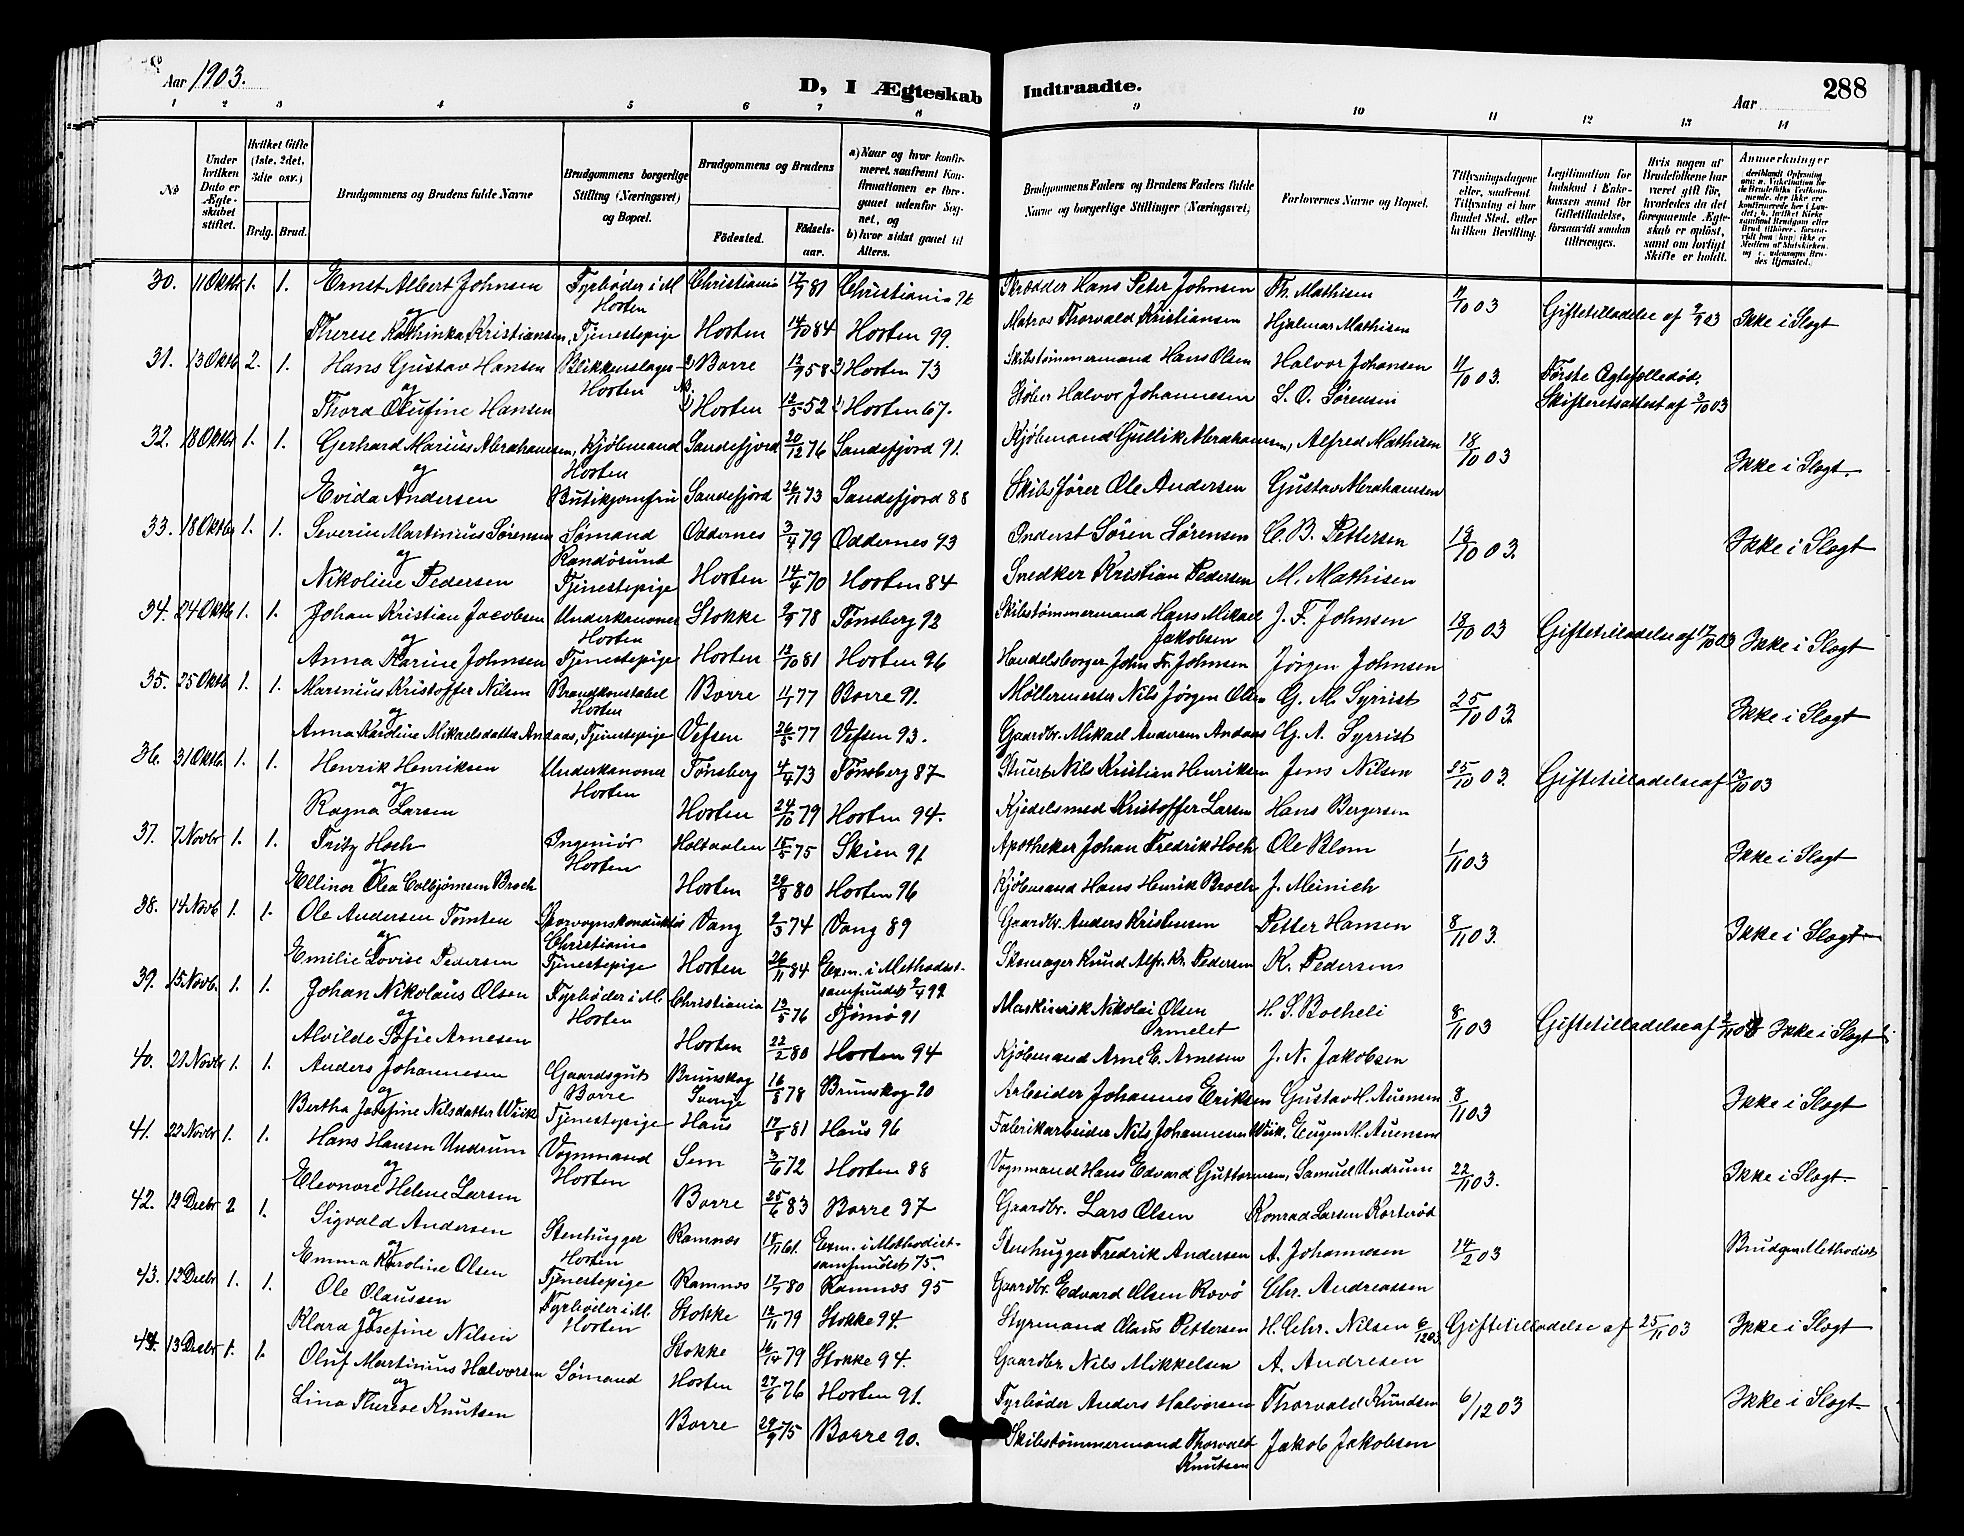 Aar 1903.
D, I Ægteskab Indtraadte.
Aar
288
1 2 3 4 5 6 7 8 9 10 11 12 13 14
No
Under hvilken Dato er Ægteskabet stiftet.
Hvilket Gifte (1ste, 2det, 3die osv.)
Brdg. Brud.
Brudgommens og Brudens fulde Navne
Brudgommens borgerlige Stilling (Næringsvei) og Bopæl.
Brudgommens og Brudens
Fødested.
Fødselsaar.
a) Naar og hvor konfirmeret, saafremt Konfirmationen er foregaaet udenfor Sognet, og
b) hvor sidst gaaet til Alters.
Brudgommens Faders og Brudens Faders fulde Navne og borgerlige Stillinger (Næringsvei)
Forlovernes Navne og Bopæl.
Tillysningsdagene eller, saafremt Tillysning ei har fundet Sted, efter hvilken Bevilling.
Legitimation for Indskud i Enkekassen samt for Giftetilladelse, forsaavidt saadan tiltrænges.
Hvis nogen af Brudefolkene har været gift før, hvorledes da det foregaaende Ægteskab er opløst, samt om lovligt Skifte er holdt.
Anmærkninger
30. 11 Oktbr 1. 1. Ernst Albert Johnsen Fyrbøder i M. Horten Christiania 17/9 81 Christiania 96 Skrædder Hans Peter Johnsen Th. Mathisen 11/10 03 Giftetilladelse af 9/9 03 Ikke i Slægt
og
Therese Kathinka Kristiansen, Tjenestepige Horten 14/10 84 Horten 99. Matros Thorvald Kristiansen Hjalmar Mathisen
31. 13 Oktb 2. 1. Hans Gustav Hansen Blikkenslager Horten Borre 12/9 58 Horten 73 Skibstømmermand Hans Olsen Halvor Johansen 11/10 03. Første Ægtefælle død,
og
Thora Olufine Hansen Horten 12/5 52 Horten 67. Støber Halvor Johannesen S. O. Sørensen Skifteretsattest af 3/10 03
32. 18 Oktb 1. 1. Gerhard Marius Abrahamsen, Kjøbmand Horten Sandefjord 20/12 76 Sandefjord 91. Kjøbmand Gullik Abrahamsen, Alfred Mathisen 18/10 03 Ikke i Slægt.
og
Evida Andersen Butikjomfru Sandefjord 26/11 73 Sandefjord 88 Skibsfører Ole Andersen Gustav Abrahamsen
33. 18 Oktbr 1. 1. Severin Martinius Sørensen Sømand Randøsund Oddernes 3/4 79 Oddernes 93 Inderst Søren Sørensen C. B. Pettersen 18/10 03. Ikke i Slægt
og
Nikoline Pedersen Tjenestepige Horten 14/4 70 Horten 84 Snedker Kristian Pedersen M. Mathisen
34. 24 Oktb 1. 1. Johan Kristian Jacobsen Underkanoner Horten Stokke 2/9 78 Tønsberg 92 Skibstømmermand Hans Mikael Jakobsen J. F. Johnsen 18/10 03 Giftetilladelse af 17/10 03 Ikke i Slægt
og
Anna Karine Johnsen Tjenestepige Horten 13/10 81 Horten 96 Handelsborger John Fr. Johnsen Jørgen Johnsen
35. 25 Oktb 1. 1. Marinius Kristoffer Nilsen Brandkonstabel Horten Borre 11/7 77 Borre 91. Møllermester Nils Jørgen Olsen G. M. Syrrist 25/10 03. Ikke i Slægt
og
Anna Karoline Mikaelsdatter Andaas, Tjenestepige Vefsen 26/5 77 Vefsen 93. Gaardbr. Mikael Andersen Andaas G. A. Syrrist
36. 31 Oktb 1. 1. Henrik Henriksen Underkanoner Horten Tønsberg 4/4 73 Tønsberg 87 Stuert Nils Kristian Henriksen Jens Nilsen 25/10 03. Giftetilladelse af 12/10 03
og
Ragna Larsen Horten 24/10 79 Horten 94. Kjedelsmed Kristoffer Larsen Hans Bergersen
37. 7 Novbr 1. 1. Fritz Hoch Ingeniør Horten Holtaalen 18/5 75 Skien 91 Apotheker Johan Fredrik Hoch Ole Blom 1/11 03 Ikke i Slægt
og
Ellinor Olea Colbjørnsen Broch Horten 29/8 80 Horten 96 Kjøbmand Hans Henrik Broch J. Meinich
38. 14 Novb 1. 1. Ole Andersen Tomten Sporvognskonduktør Christiania Vang 2/3 74 Vang 89 Gaardbr. Anders Kristensen Petter Hansen 8/11 03. Ikke i Slægt
og
Emilie Lovise Pedersen Tjenestepige Horten 26/11 84 Exm. i Methodistsamfundet 2/4 99 Skomager Knud Alfr. Kr. Pedersen K. Pedersens
39. 15 Novb. 1. 1. Johan Nikolaus Olsen Fyrbøder i M. Horten Christiania 13/5 76 Tjømø 91 Maskinvisk Nikolai Olsen Ormelet H. S. Bocheli 8/11 03 Giftetilladelse af 2/11 03 Ikke i Slægt
og
Alvilde Sofie Arnesen Horten 22/2 80 Horten 94 Kjøbmand Arne E. Arnesen J. N. Jakobsen
40. 21 Novbr 1. 1. Anders Johannesen Gaardsgut Borre Brunskog Sverige 16/8 78 Brunskog 90 Arbeider Johannes Eriksen Gustav H. Auensen 8/11 03 Ikke i Slægt
og
Bertha Josefine Nilsdatter Wiik Tjenestepige Haus 17/8 81 Haus 96 Fabrikarbeider Nils Johannesen Wiik. Eugen M. Auensen
41. 22 Novbr 1. 1. Hans Hansen Undrum Vognmand Horten Sem 3/6 72 Horten 88 Vognmand Hans Edvard Guttormsen, Samuel Undrum 22/11 03. Ikke i Slægt.
og
Eleonore Helene Larsen Borre 25/6 83 Borre 97 Gaardbr. Lars Olsen Konrad Larsen Korterød
42. 12 Decbr 2 1. Sigvald Andersen Stenhugger Horten Ramnæs 18/11 61. Exm. i Methodistsamfundet 75. Stenhugger Fredrik Andersen A. Johannesen 14/2 03 Brudgom Methodist
og
Emma Karoline Olsen Tjenestepige Ramnæs 17/7 80 Ramnæs 95 Gaardbr. Edvard Olsen Rovø Chr. Andreassen
43. 12 Decbr 1. 1. Ole Olaussen Fyrbøder i M. Horten Stokke 12/11 79 Stokke 94. Styrmand Olaus Pettersen H. Chr. Nilsen 6/12 03. Giftetilladelse af 25/11 03 Ikke i Slægt
og
Klara Josefine Nilsen Stokke 16/14 79 Stokke 94. Gaardbr. Nils Mikkelsen A. Andresen
44. 13 Decbr 1. 1. Oluf Martinius Halvorsen Sømand Horten 27/6 76 Horten 91. Fyrbøder Anders Halvorsen Thorvald Knudsen 6/12 03 Ikke i Slægt.
og
Lina Therese Knutsen Borre 29/9 75 Borre 90. Skibstømmermand Thorvald Knutsen Jakob Jakobsen